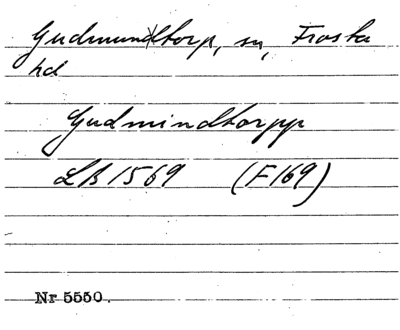 Gudmundtorp, sn, Frosta
hd
Gudmindtorpp
LB 1569 (F169)
Nr 5550.